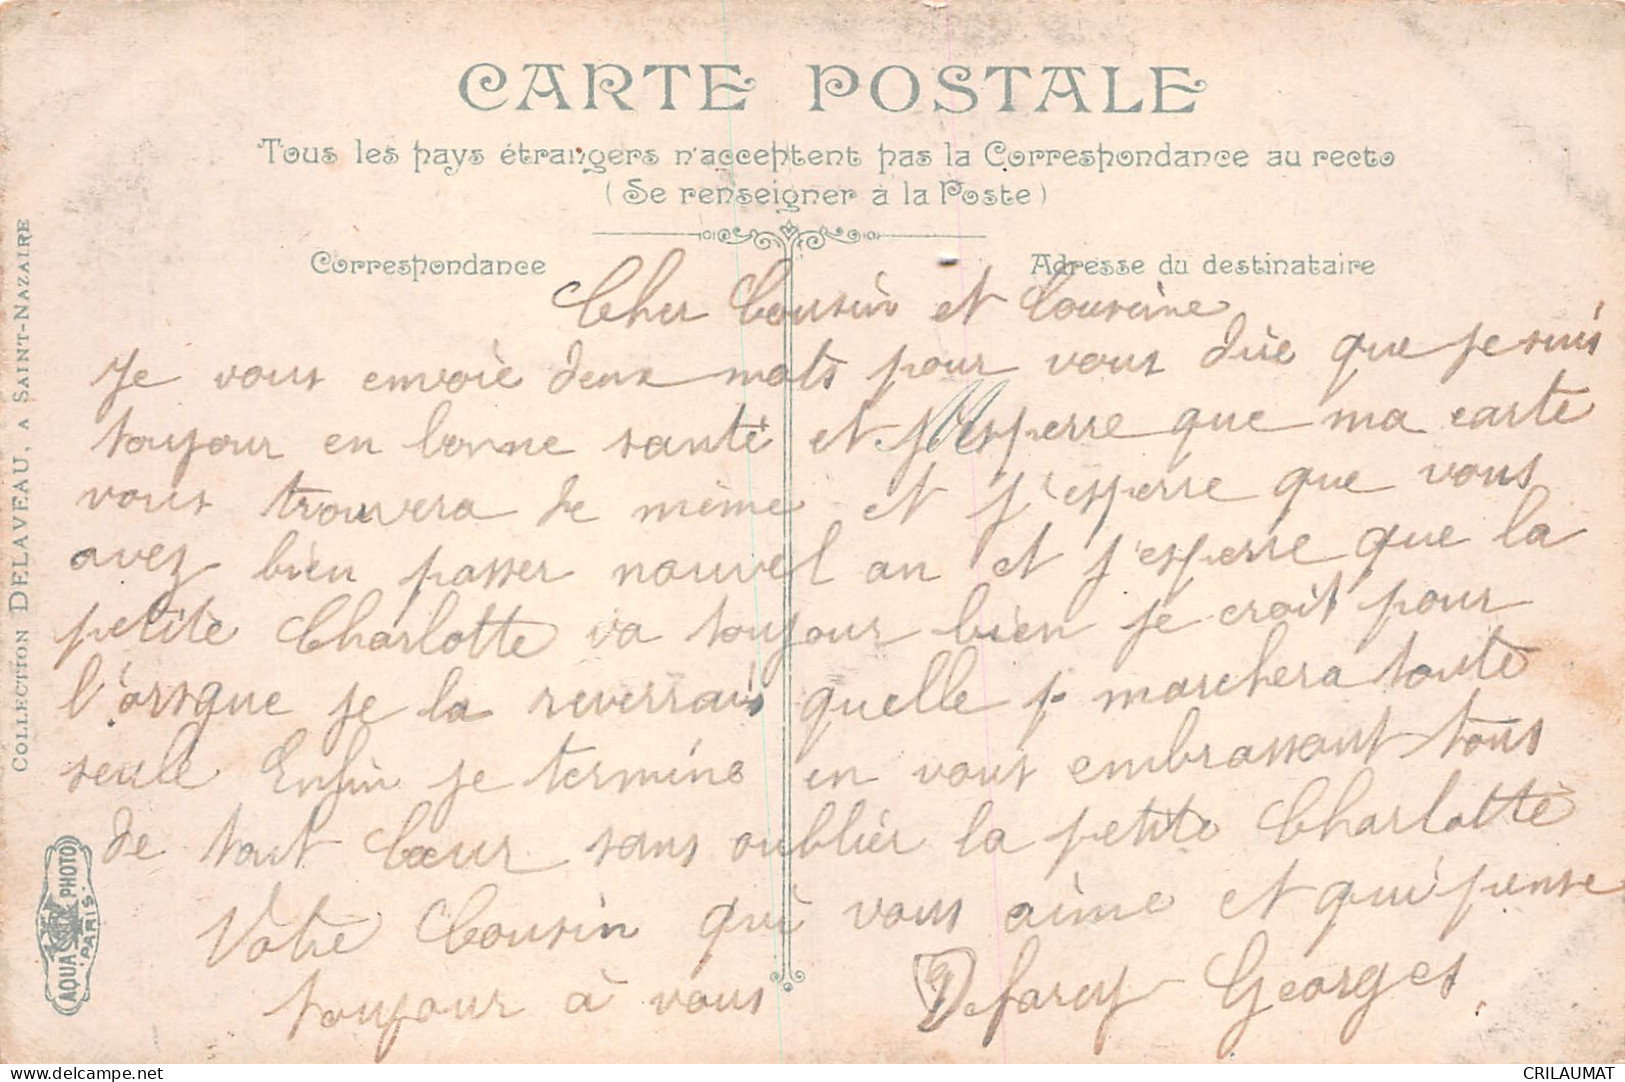 CARTE POSTALE
Tous les pays étrangers n'acceptent pas la Correspondance au recto
(Se renseigner à la Poste)
Correspondance
Adresse du destinataire
Cher Cousin et Cousine
Je vous envoie deux mots pour vous dire que je suis
toujour en bonne santé et j'esperre que ma carte
vous trouvera de même et j'esperre que vous
avez bien passer nouvel an et j'esperre que la
petite Charlotte va toujour bien je croit pour
l'orsque je la reverrais quelle marchera toute
seule Enfin je termine en vous embrassant tous
de tout Cœur sans oublier la petite Charlotte
Votre Cousin qui vous aime et qui pense
toujour à vous Defarcy Georges
COLLECTION DELAVEAU, A SAINT-NAZAIRE
AQUA PHOTO
PARIS
CRILAUMAT